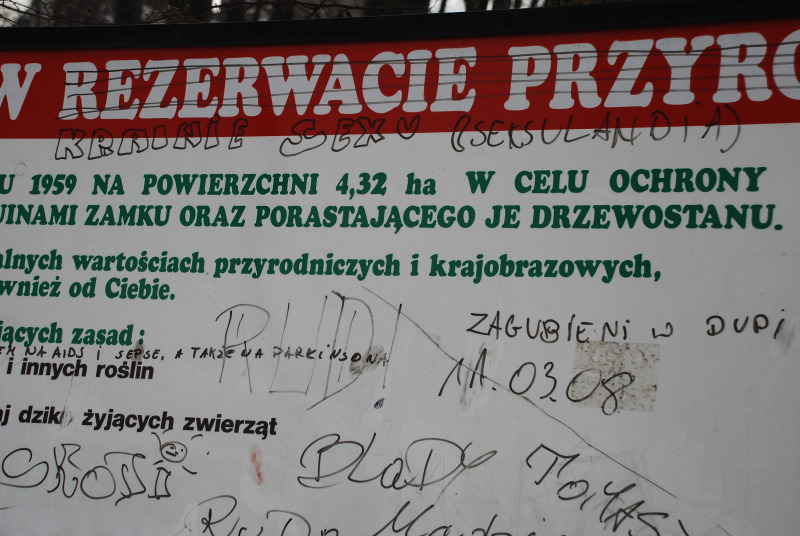 W REZERWACIE PRZYRO
KRAINIE SEXU (SEKSULANDIA)
U 1959 NA POWIERZCHNI 4,32 ha W CELU OCHRONY
UINAMI ZAMKU ORAZ PORASTAJĄCEGO JE DRZEWOSTANU.
alnych wartościach przyrodniczych i krajobrazowych,
wnież od Ciebie.
RUDI
ZAGUBIENI W DUPI
jących zasad:
EM NA AIDS I SEPSE, A TAKŻE NA PARKINSONA
i innych roślin
11.03.08
aj dziko żyjących zwierząt
SKODI
BLADY TOMASI